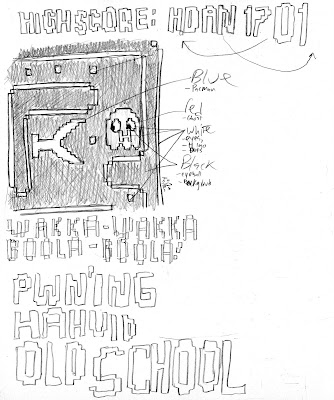 HIGHSCORE: HDAN 1701
Blue
-Pacman
red
-Ghost
white
-eyes,
-Dots
Black
-background
WAKKA-WAKKA
BOOLA-BOOLA!
PWN'ING
HAHVID
OLD SCHOOL